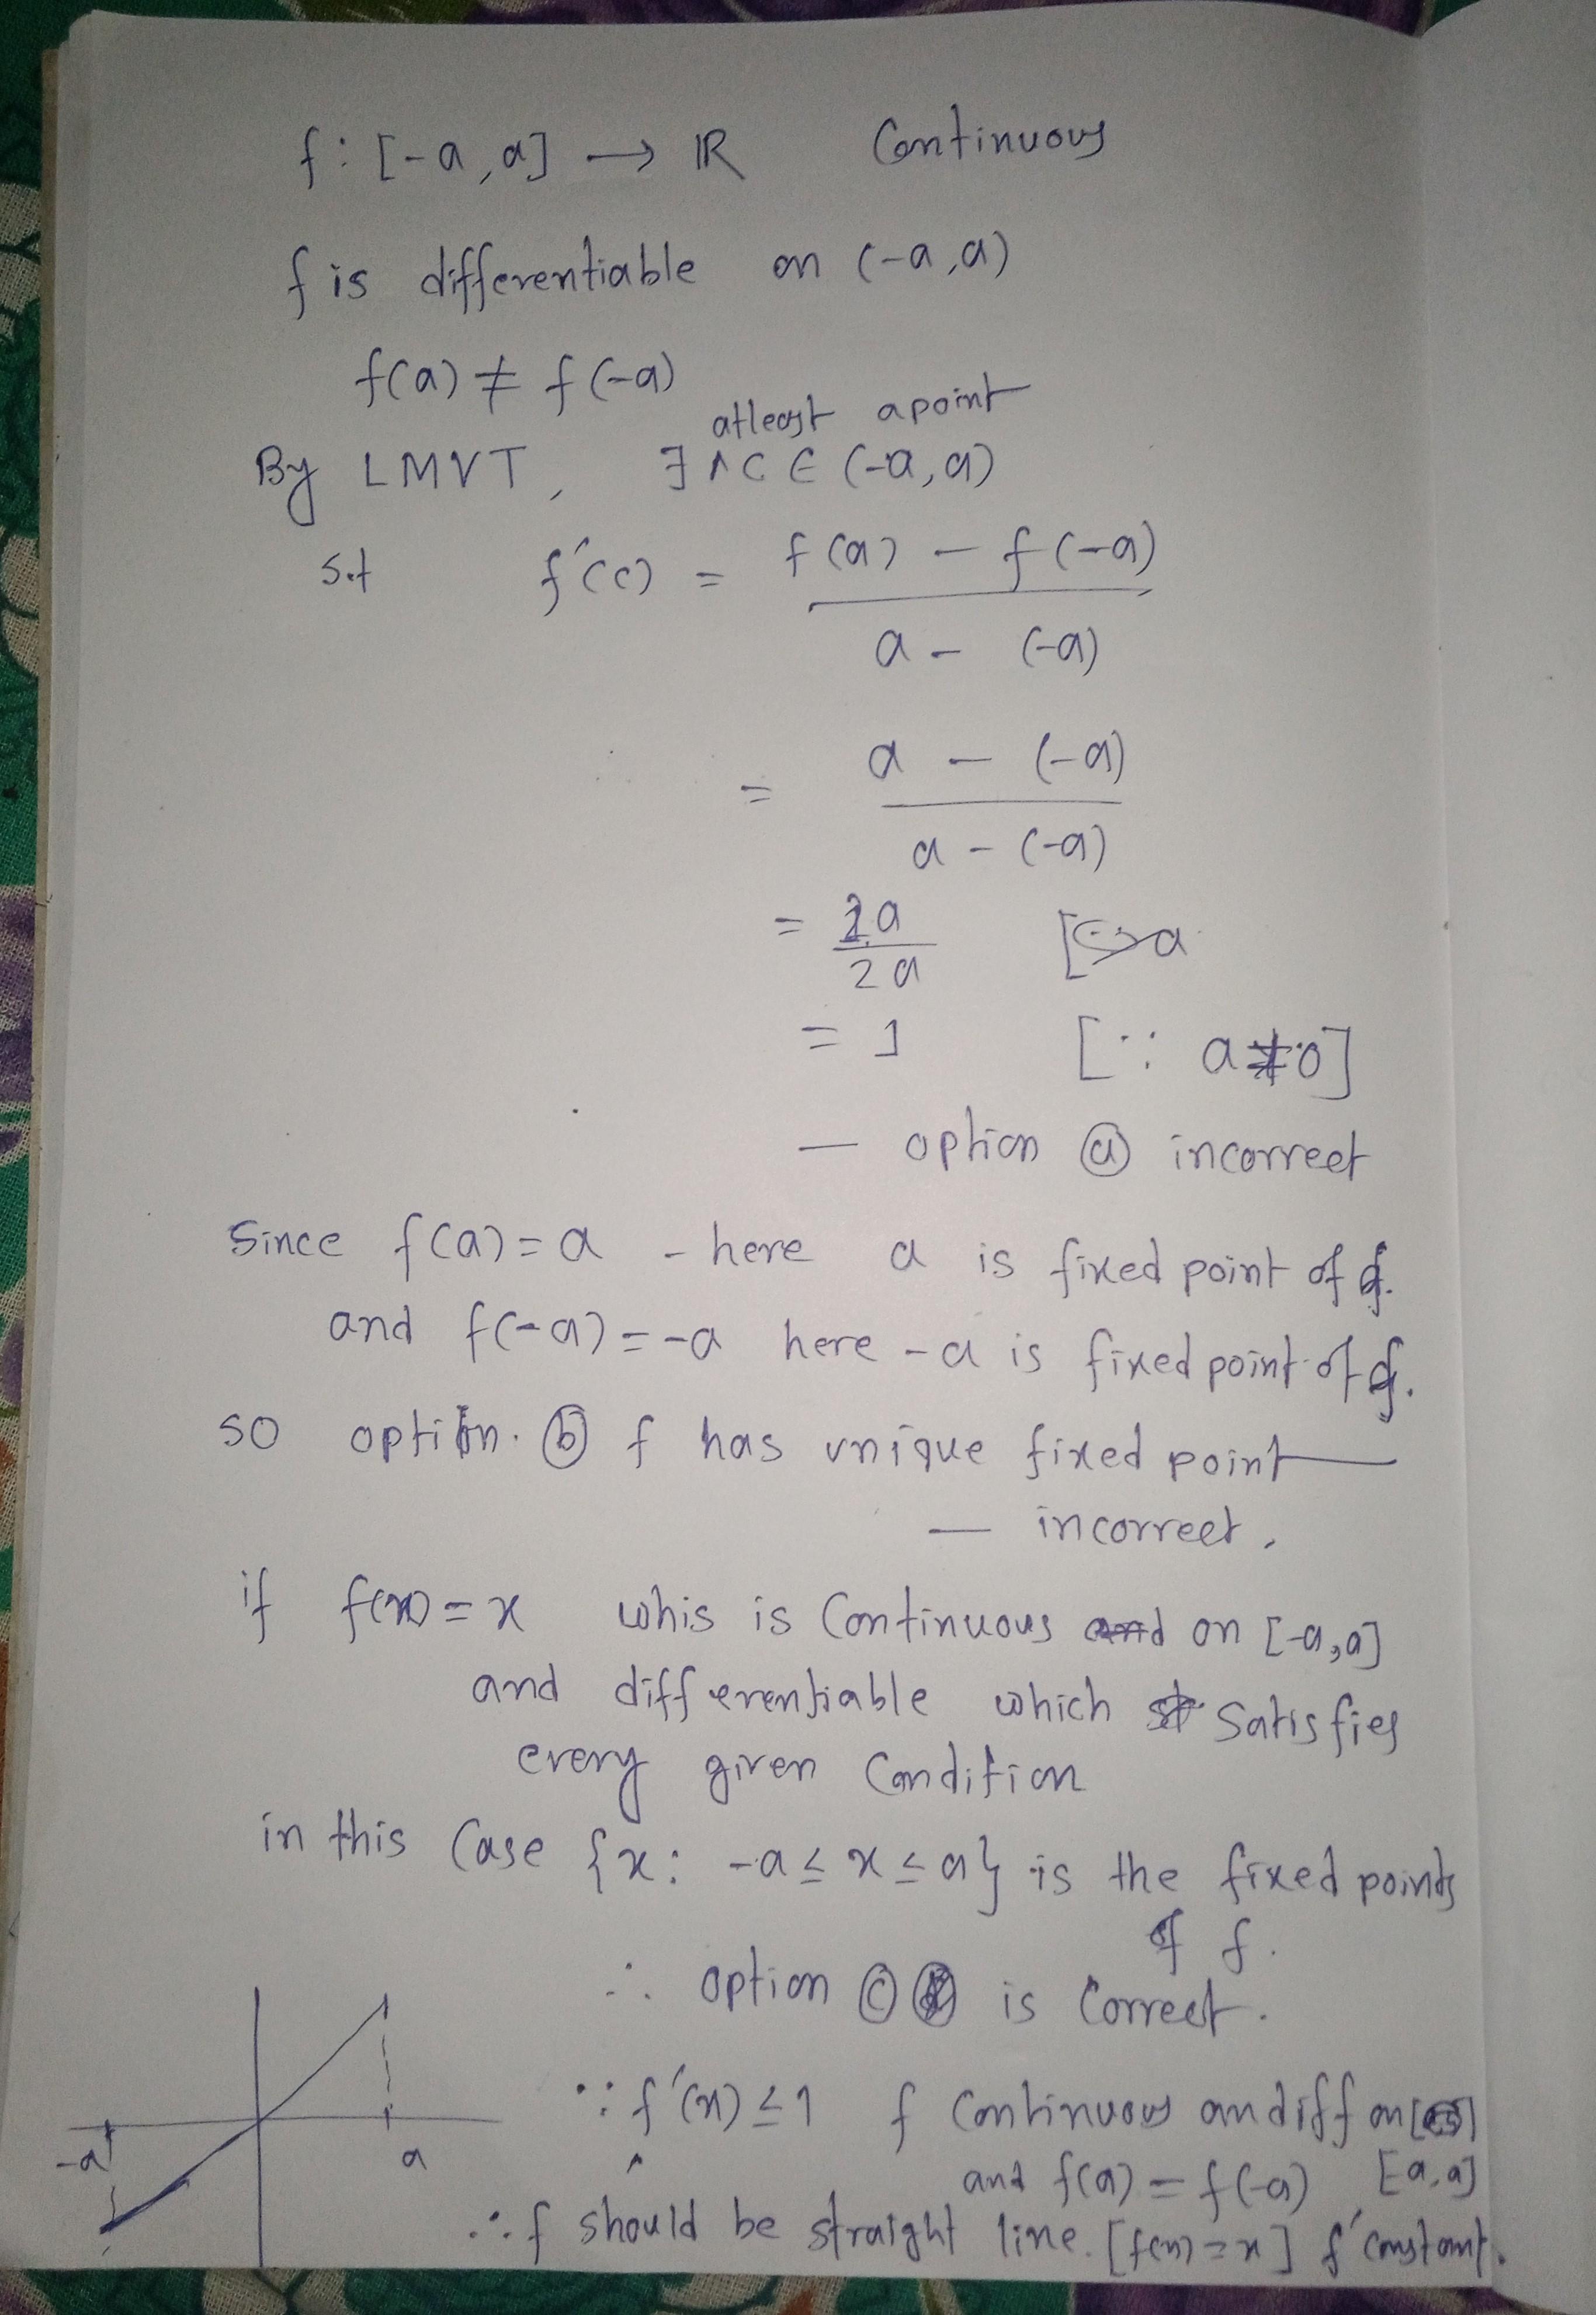 f : [-a, a] → IR Continuous
f is differentiable on (-a, a)
f(a) ≠ f(-a)
atleast a point
By LMVT, ∃ ∧ C ∈ (-a, a)
s.t f'(c) = f(a) - f(-a)
a - (-a)
= a - (-a)
a - (-a)
= 2a
2a
= 1 [∵ a ≠ 0]
— option ⓐ incorrect
Since f(a) = a - here a is fixed point of f.
and f(-a) = -a here -a is fixed point of f.
so option. ⓑ f has unique fixed point —
— incorrect.
if f(x) = x whis is Continuous on [-a, a]
and differentiable which satisfies
every given Condition
in this Case {x : -a ≤ x ≤ a} is the fixed points
of f.
∴ option ⓒ is Correct.
-a a
∵ f'(x) ≤ 1 f Continuous an diff on
and f(a) = f(-a) [-a, a]
∴ f should be straight line. [f(x) = x] f' constant.